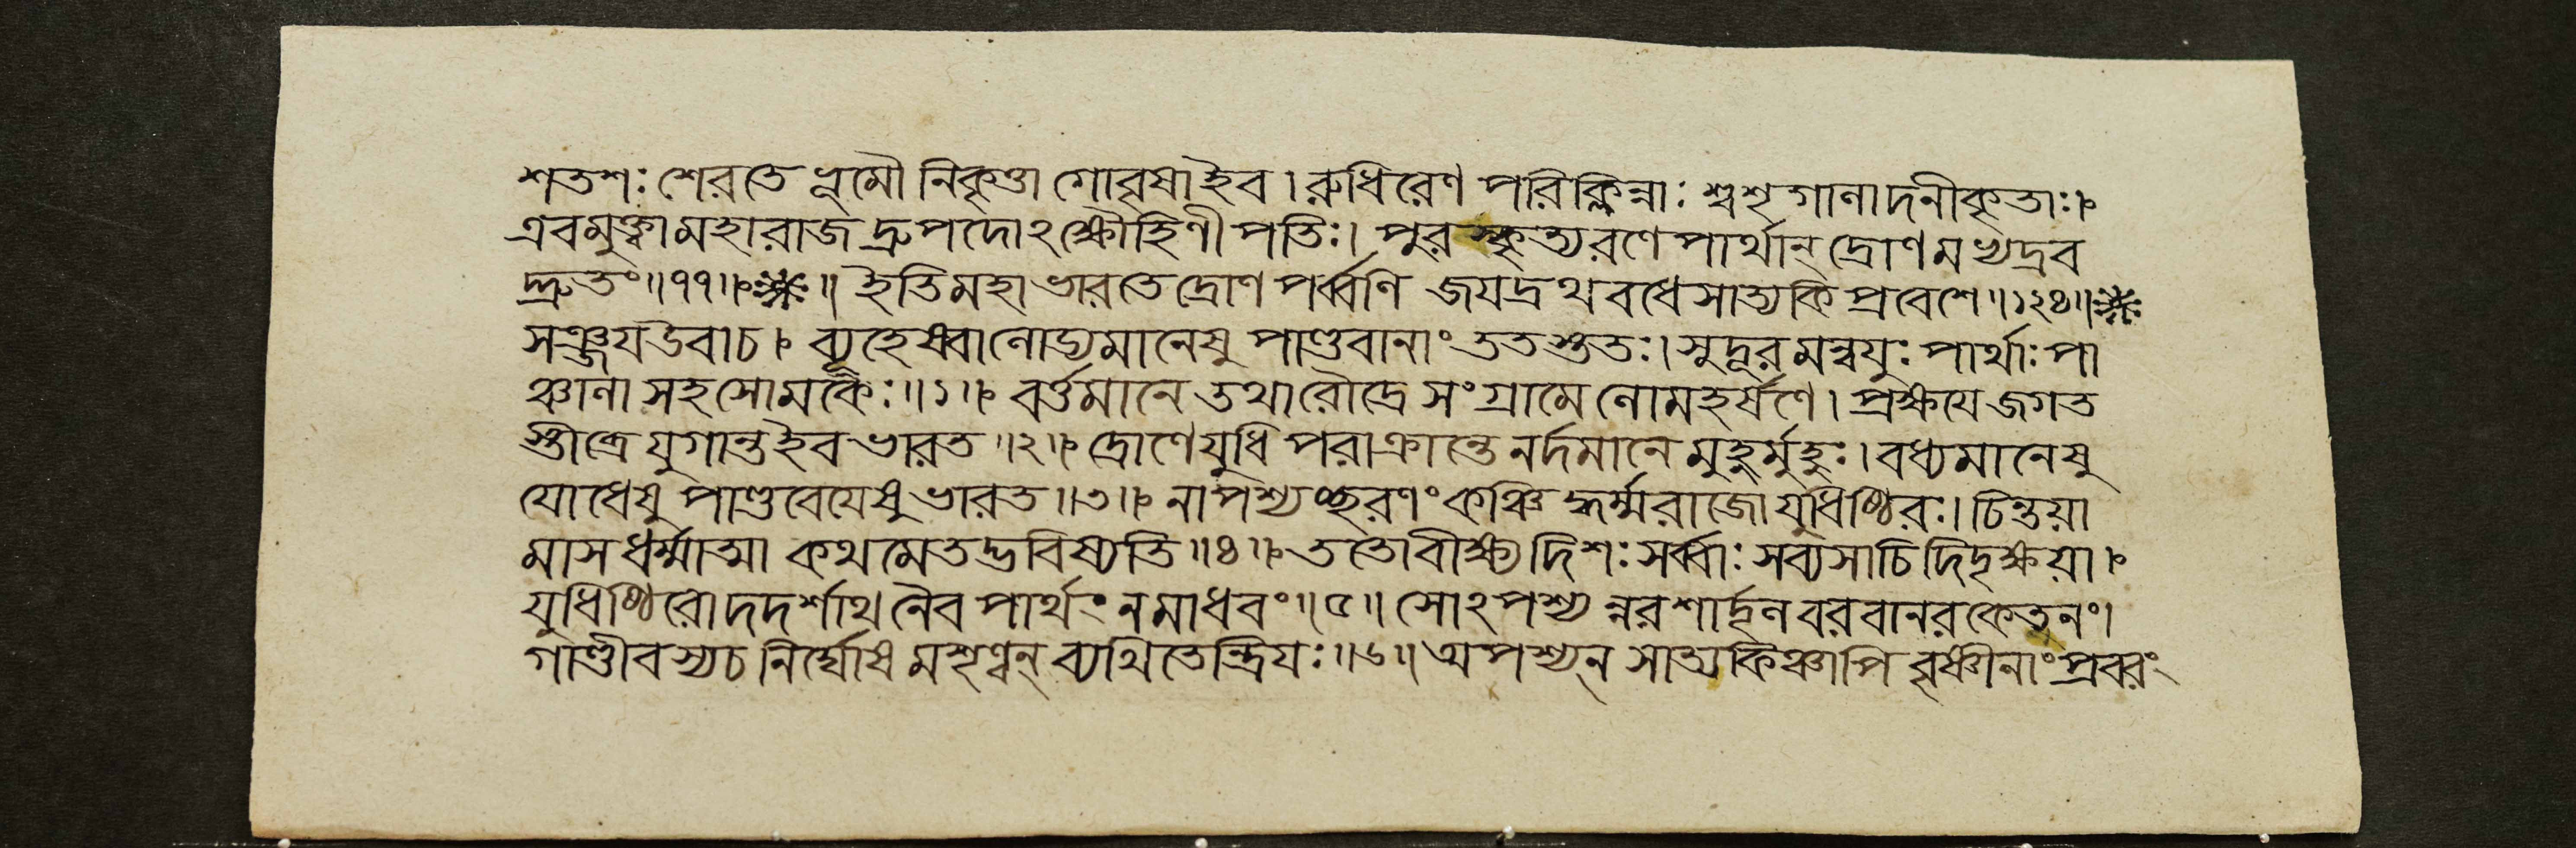 শতশঃ শেরতে ভূমৌ নিকৃত্তা গোবৃষা ইব। রুধিরেণ পরিক্লিন্নাঃ শ্বশৃগালাদনীকৃতাঃ।
এবমুক্ত্বা মহারাজ দ্রুপদোঽক্ষৌহিণীপতিঃ। পুরস্কৃত্য রণে পার্থান্ দ্রোণমভ্যদ্রব
দ্দ্রুতং॥৭৭॥ ॥ ইতি মহাভারতে দ্রোণপর্ব্বণি জয়দ্রথবধে সাত্যকিপ্রবেশে॥১২৪॥
সঞ্জয় উবাচ। ব্যূহেষ্বালোড্যমানেষু পাণ্ডবানাং ততস্ততঃ। সুদূরমন্বয়ুঃ পার্থাঃ পা
ঞ্চালা সহ সোমকৈঃ॥১॥ বর্ত্তমানে তথা রৌদ্রে সংগ্রামে লোমহর্ষণে। প্রক্ষয়ে জগত
স্তীব্রে যুগান্ত ইব ভারত॥২॥ দ্রোণে যুধি পরাক্রান্তে নর্দমানে মুহুর্মুহুঃ। বধ্যমানেষু
যোধেষু পাণ্ডবেয়েষু ভারত॥৩॥ নাপশ্যচ্ছরণং কঞ্চিদ্ধর্ম্মরাজো যুধিষ্ঠিরঃ। চিন্তয়া
মাস ধর্ম্মাত্মা কথমেতদ্ভবিষ্যতি॥৪॥ ততো বীক্ষ্য দিশঃ সর্ব্বাঃ সব্যসাচিদিদৃক্ষয়া।
যুধিষ্ঠিরো দদর্শাথ নৈব পার্থং ন মাধবং॥৫॥ সোঽপশ্যন্নরশার্দ্দূল বরবানরকেতনং।
গাণ্ডীবস্য চ নির্ঘোষমশৃণ্বন্ ব্যথিতেন্দ্রিয়ঃ॥৬॥ অপশ্যন্ সাত্যকিঞ্চাপি বৃষ্ণীনাং প্রবরং